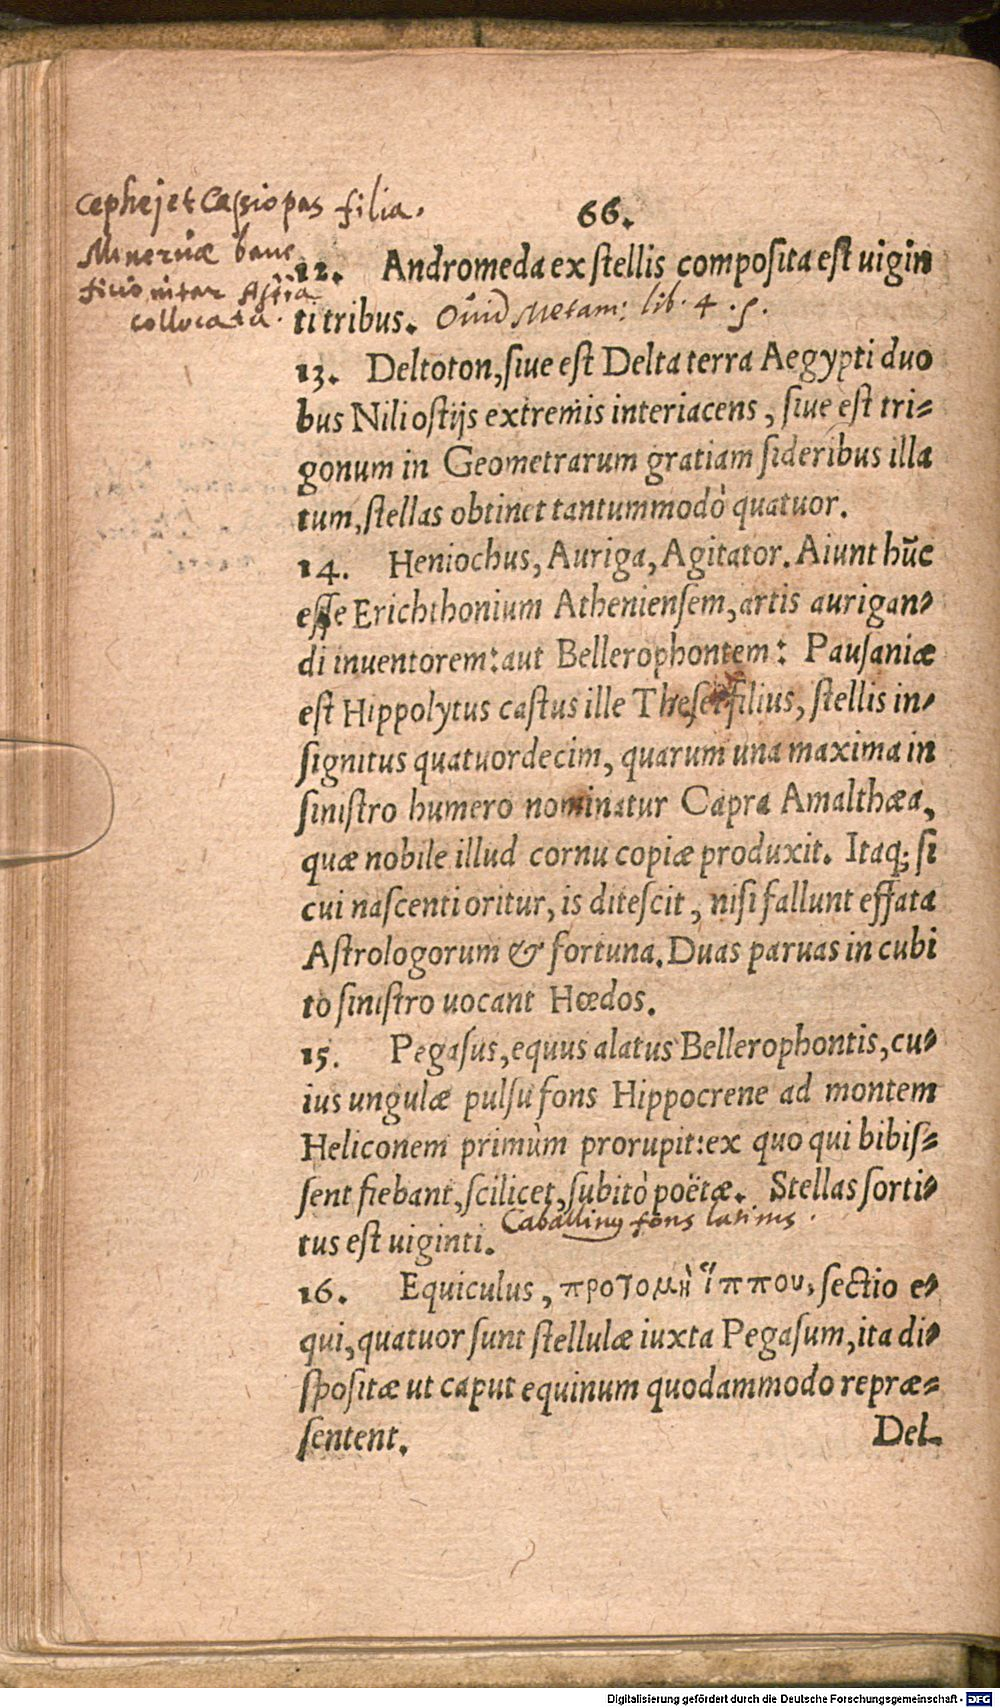 Cephej et Cassiopes filia.
Mineruæ bene
ficio inter Astra
collocata.
66.
12. Andromeda ex stellis composita est uigin
ti tribus. Ouid Metam: lib. 4.
13. Deltoton, siue est Delta terra Aegypti duo
bus Nili ostijs extremis interiacens, siue est tri-
gonum in Geometrarum gratiam sideribus illa
tum, stellas obtinet tantummodò quatuor.
14. Heniochus, Auriga, Agitator. Aiunt hūc
esse Erichthonium Atheniensem, artis aurigan-
di inuentorem: aut Bellerophontem: Pausaniæ
est Hippolytus castus ille Thesei filius, stellis in-
signitus quatuordecim, quarum una maxima in
sinistro humero nominatur Capra Amalthæa,
quæ nobile illud cornu copiæ produxit. Itaq; si
cui nascenti oritur, is ditescit, nisi fallunt effata
Astrologorum & fortuna. Duas paruas in cubi
to sinistro uocant Hœdos.
15. Pegasus, equus alatus Bellerophontis, cu-
ius ungulæ pulsu fons Hippocrene ad montem
Heliconem primùm prorupit: ex quo qui bibis-
sent fiebant, scilicet, subitò poëtæ. Stellas sorti-
tus est uiginti. Caballinus fons latinis.
16. Equiculus, προτομὴ ἵππου, sectio e-
qui, quatuor sunt stellulæ iuxta Pegasum, ita di-
spositæ ut caput equinum quodammodo repræ-
sentent.
Del-
Digitalisierung gefördert durch die Deutsche Forschungsgemeinschaft - DFG